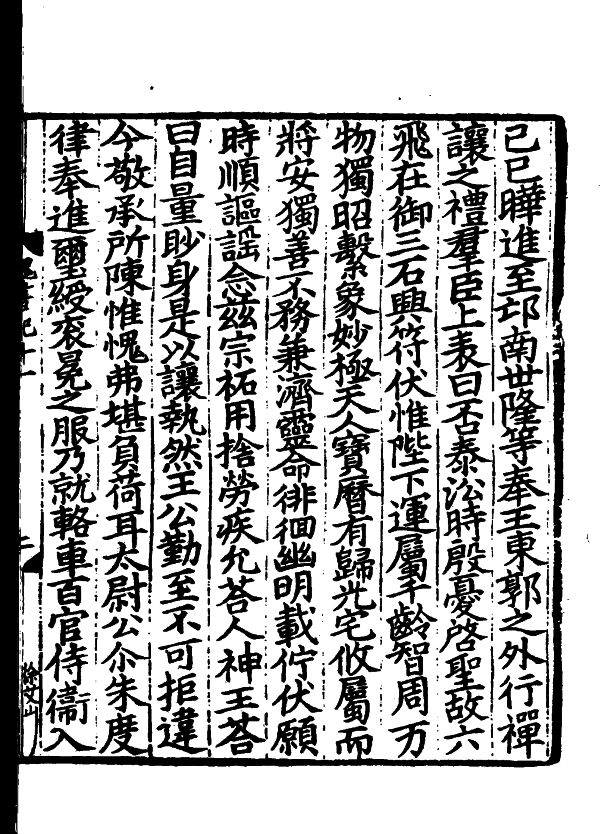 己巳曄進至邙南世隆等奉王東郭之外行禪
讓之禮羣臣上表曰否泰㳂時殷憂啓聖故六
飛在御三石興符伏惟陛下運屬千齡智周万
物獨昭繫象妙極天人寶曆有歸光宅攸屬而
將安獨善不務兼濟靈命徘徊幽明載佇伏願
時順謳謡念兹宗祏用捨勞疾允荅人神王荅
曰自量眇身是以讓執然王公勤至不可拒違
今敬承所陳惟愧弗堪負荷耳太尉公尒朱度
律奉進璽綬衮冕之服乃就輅車百官侍衞入
書紀十一
二
徐文山